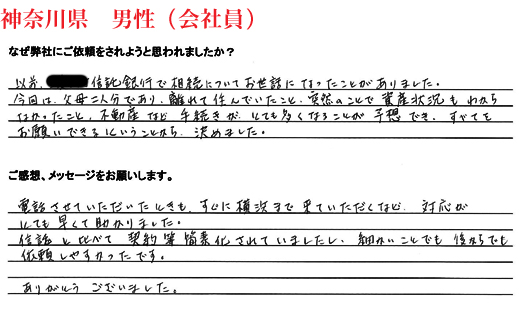 神奈川県　男性（会社員）
なぜ弊社にご依頼をされようと思われましたか？
以前、信託銀行で相続についてお世話になったことがありました。
今回は、父母二人分であり、離れて住んでいたこと、突然のことで資産状況もわから
なかったこと、不動産など手続きが、とても多くなることが予想でき、すべてを
お願いできるということから、決めました。
ご感想、メッセージをお願いします。
電話させていただいたときも、すぐに横浜まで来ていただくなど、対応が
とても早くて助かりました。
信託と比べて契約等簡素化されていましたし、細かいことでも後からでも
依頼しやすかったです。
ありがとうございました。